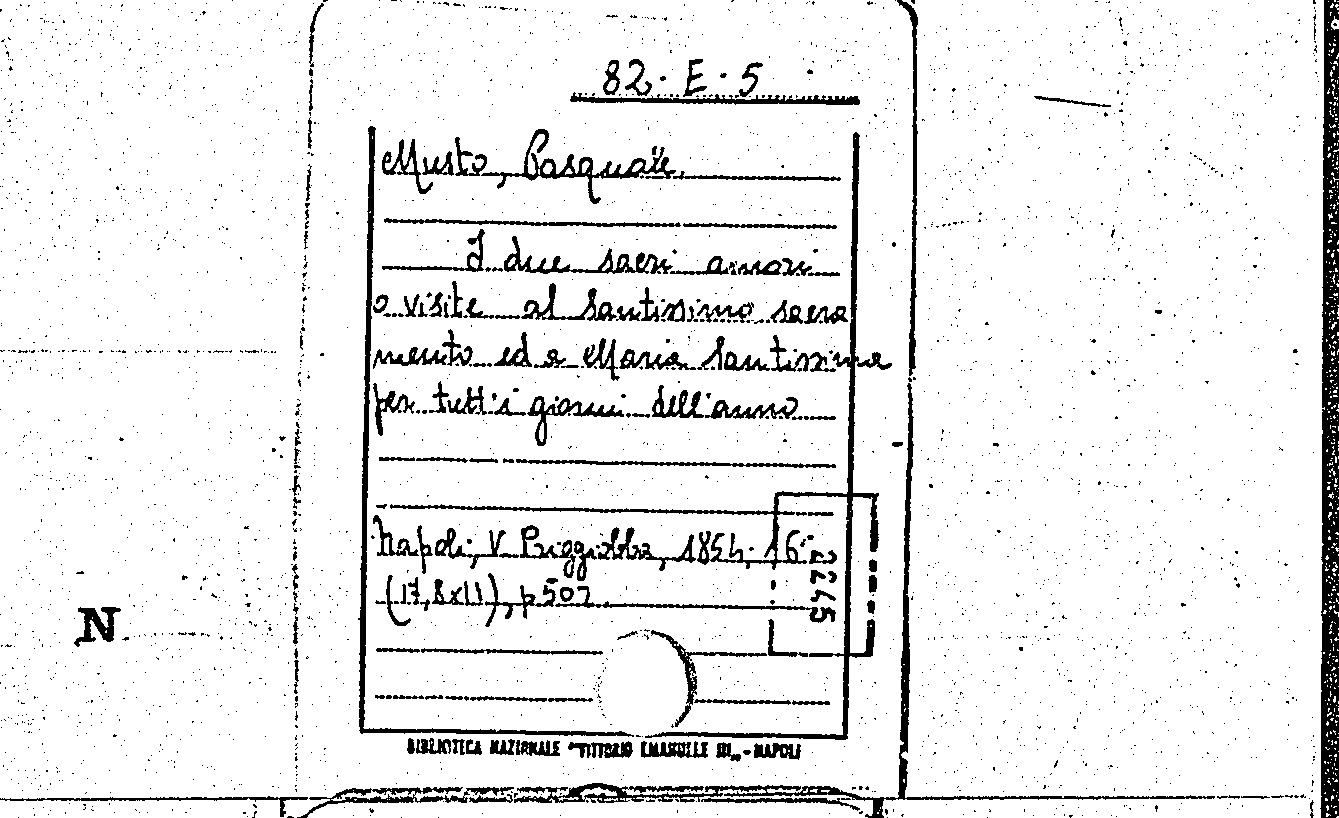 82. E. 5
Musto, Pasquale.
I due sacri amori
o visite al Santissimo sacra
mento ed a Maria Santissima
per tutt'i giorni dell'anno
Napoli, V. Priggiobba, 1854. 16°
(17,8x11), p 507.
2245
N
BIBLIOTECA NAZIONALE "VITTORIO EMANUELE III„ - NAPOLI